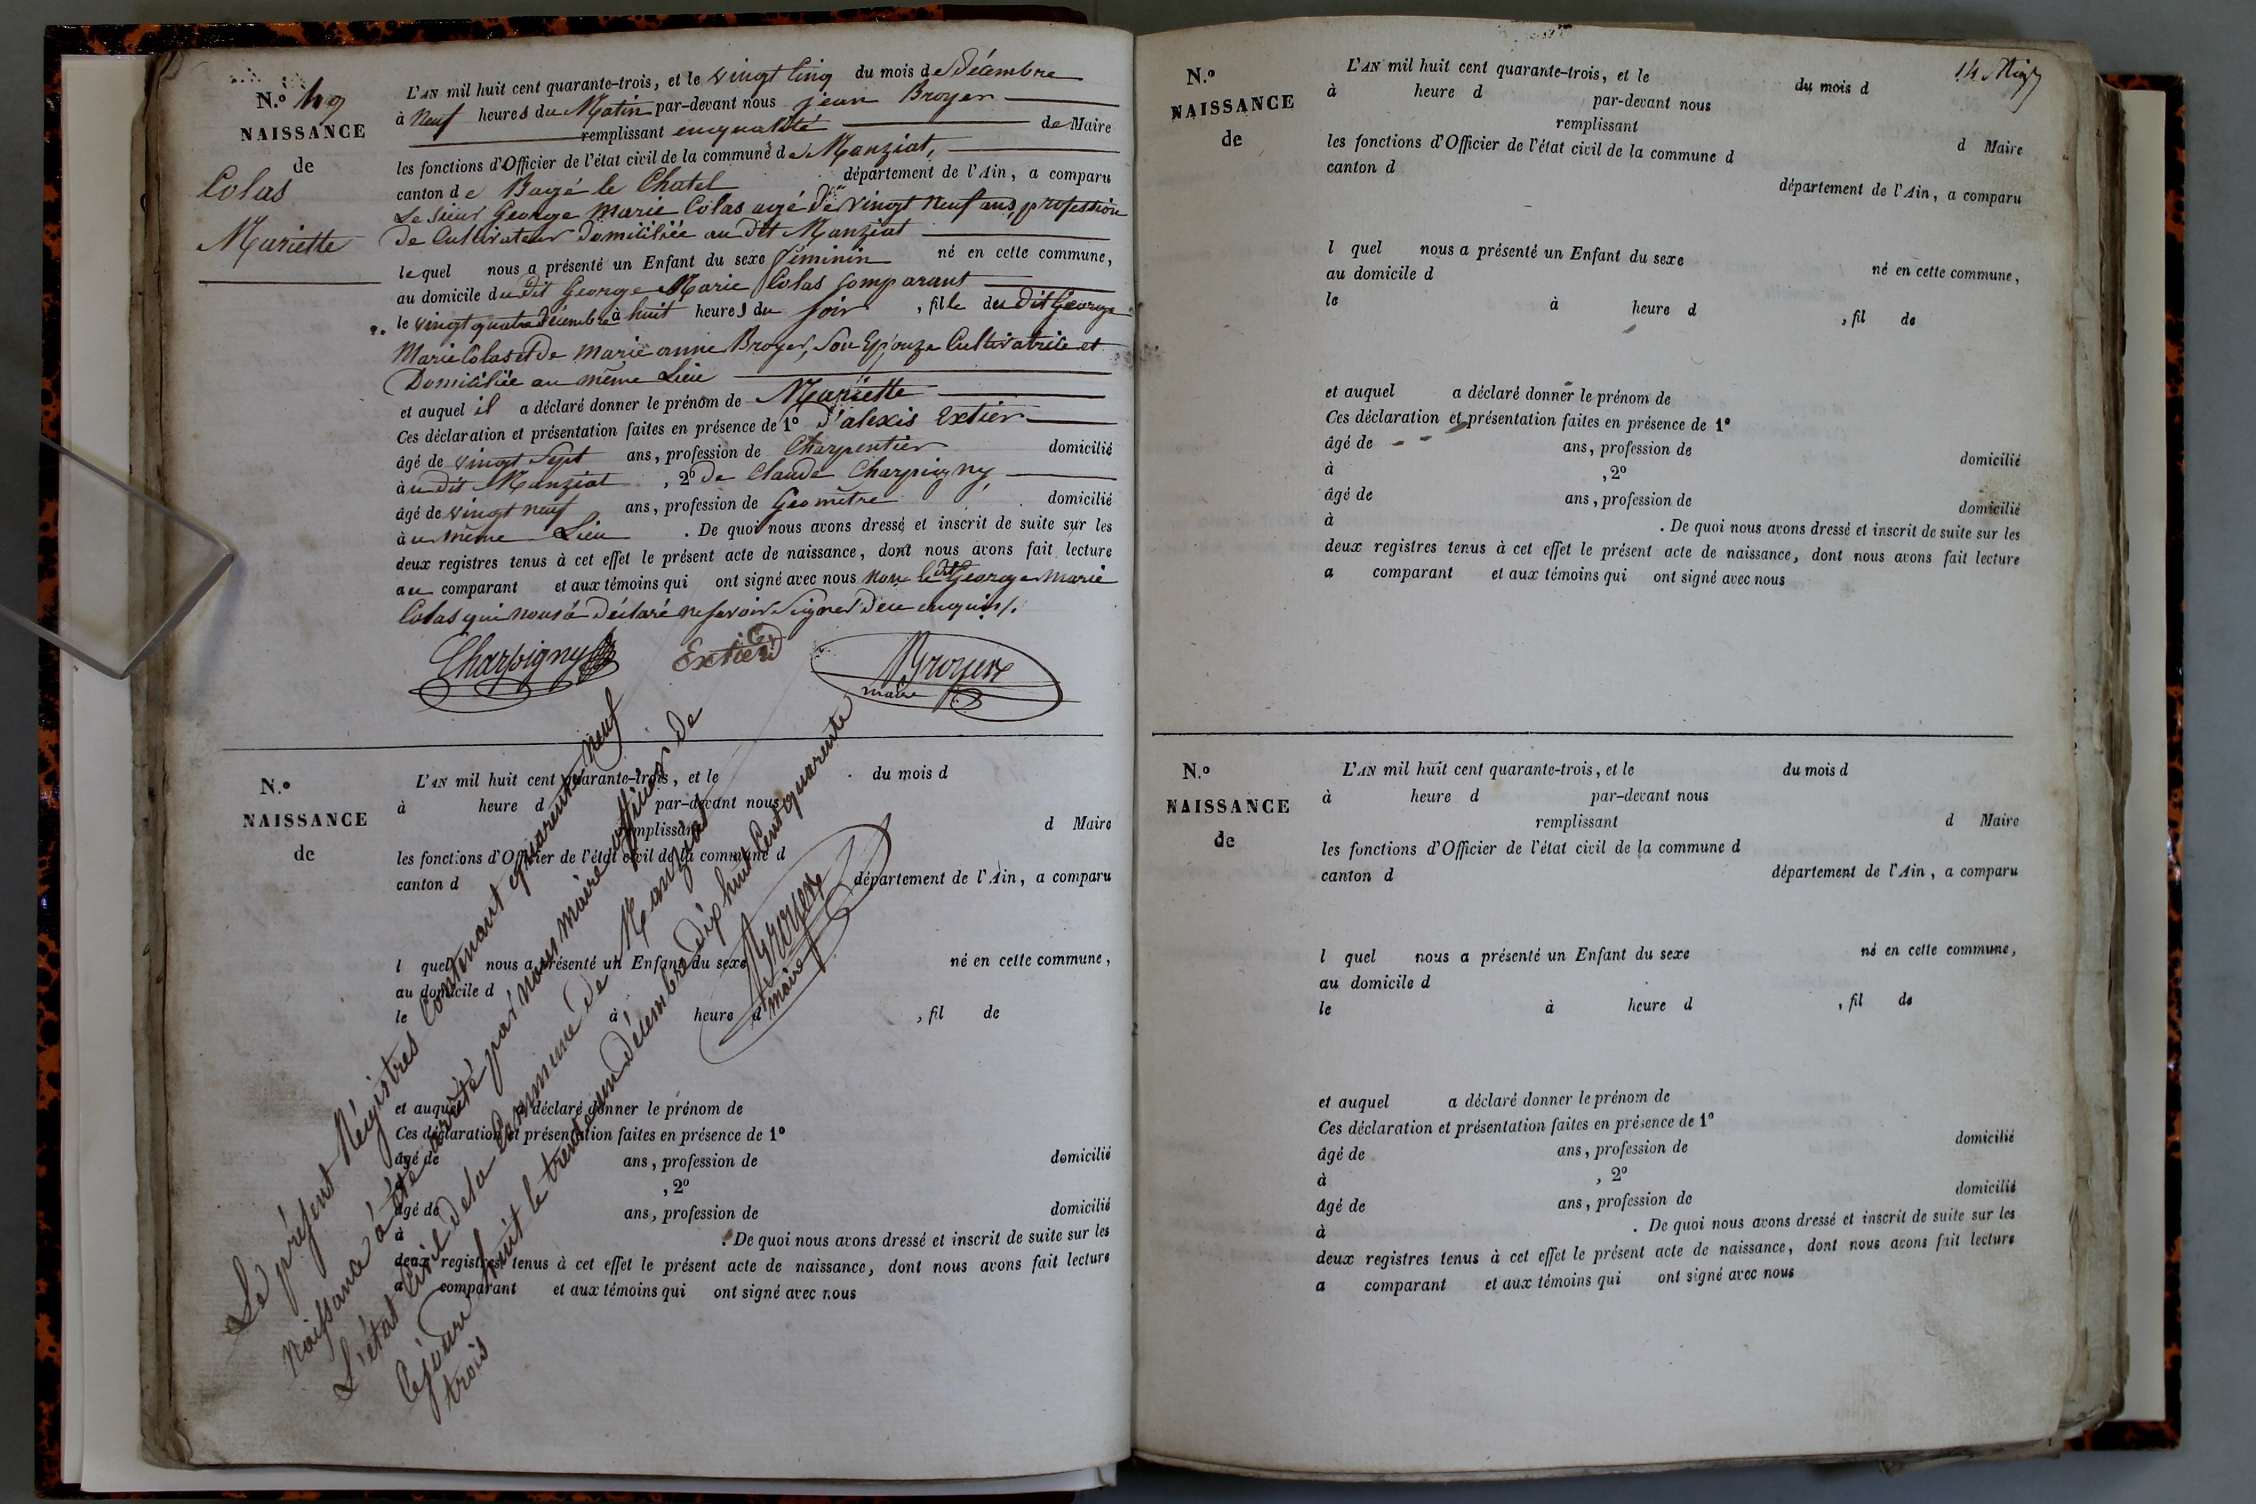 N.º 49
NAISSANCE
de
Colas
Mariette
L'AN mil huit cent quarante-trois, et le vingt Cinq du mois de Décembre
à Neuf heures du Matin par-devant nous jean Broyer
remplissant enqualité de Maire
les fonctions d'Officier de l'état civil de la commune de Manziat,
canton de Bagé le Chatel département de l'Ain, a comparu
Le sieur George Marie Colas agé de vingt neuf ans, profession
De Cultivateur Domiciliée au dit Manziat
lequel nous a présenté un Enfant du sexe féminin né en cette commune,
au domicile du dit George Marie Colas Comparant
le vingt quatre Décembre à huit heures du soir, fille du dit George
Marie Colas et De Marie anne Broyer, Son Epouze Cultivatrice et
Domiciliée au même Lieu
et auquel il a déclaré donner le prénom de Mariette
Ces déclaration et présentation faites en présence de 1º d'alexis Extier
âgé de vingt Sept ans, profession de Charpentier domicilié
àu dit Manziat, 2º De Claude Charpigny
âgé de vingt neuf ans, profession de Géomètre domicilié
àu même Lieu. De quoi nous avons dressé et inscrit de suite sur les
deux registres tenus à cet effet le présent acte de naissance, dont nous avons fait lecture
au comparant et aux témoins qui ont signé avec nous non le dit George Marie
Colas qui nous à Déclaré ne savoir Signer De ce enquis/.
Charpigny Extier Broyer
maire
N.º
NAISSANCE
de
L'AN mil huit cent quarante-trois, et le du mois d
à heure d par-devant nous
remplissant d Maire
les fonctions d'Officier de l'état civil de la commune d
canton d département de l'Ain, a comparu
l quel nous a présenté un Enfant du sexe né en cette commune,
au domicile d
le à heure d , fil de
et auquel a déclaré donner le prénom de
Ces déclaration et présentation faites en présence de 1º
âgé de ans, profession de domicilié
à , 2º
âgé de ans, profession de domicilié
à . De quoi nous avons dressé et inscrit de suite sur les
deux registres tenus à cet effet le présent acte de naissance, dont nous avons fait lecture
a comparant et aux témoins qui ont signé avec nous
Le présent Régistres Contenant quarente neuf
Naissance à été arrêté par nous maire officier de
L'état Civil de la Commune de Manziat
Cejourd'huit le trente un Décembre Dix huit Cent quarente
trois
Broyer
maire
14 
N.º
NAISSANCE
de
L'AN mil huit cent quarante-trois, et le du mois d
à heure d par-devant nous
remplissant d Maire
les fonctions d'Officier de l'état civil de la commune d
canton d département de l'Ain, a comparu
l quel nous a présenté un Enfant du sexe né en cette commune,
au domicile d
le à heure d , fil de
et auquel a déclaré donner le prénom de
Ces déclaration et présentation faites en présence de 1º
âgé de ans, profession de domicilié
à , 2º
âgé de ans, profession de domicilié
à . De quoi nous avons dressé et inscrit de suite sur les
deux registres tenus à cet effet le présent acte de naissance, dont nous avons fait lecture
a comparant et aux témoins qui ont signé avec nous
N.º
NAISSANCE
de
L'AN mil huit cent quarante-trois, et le du mois d
à heure d par-devant nous
remplissant d Maire
les fonctions d'Officier de l'état civil de la commune d
canton d département de l'Ain, a comparu
l quel nous a présenté un Enfant du sexe né en cette commune,
au domicile d
le à heure d , fil de
et auquel a déclaré donner le prénom de
Ces déclaration et présentation faites en présence de 1º
âgé de ans, profession de domicilié
à , 2º
âgé de ans, profession de domicilié
à . De quoi nous avons dressé et inscrit de suite sur les
deux registres tenus à cet effet le présent acte de naissance, dont nous avons fait lecture
a comparant et aux témoins qui ont signé avec nous